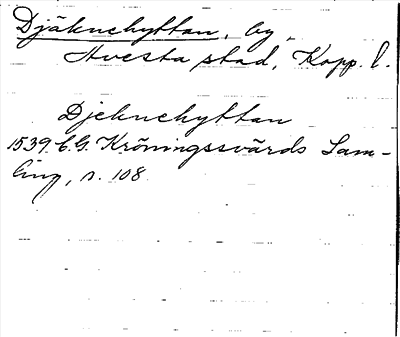 Djäknehyttan, by,
Avesta stad, Kopp. l.
Djeknehyttan
1539 C.G. Kröningssvärds Sam-
ling, s. 108